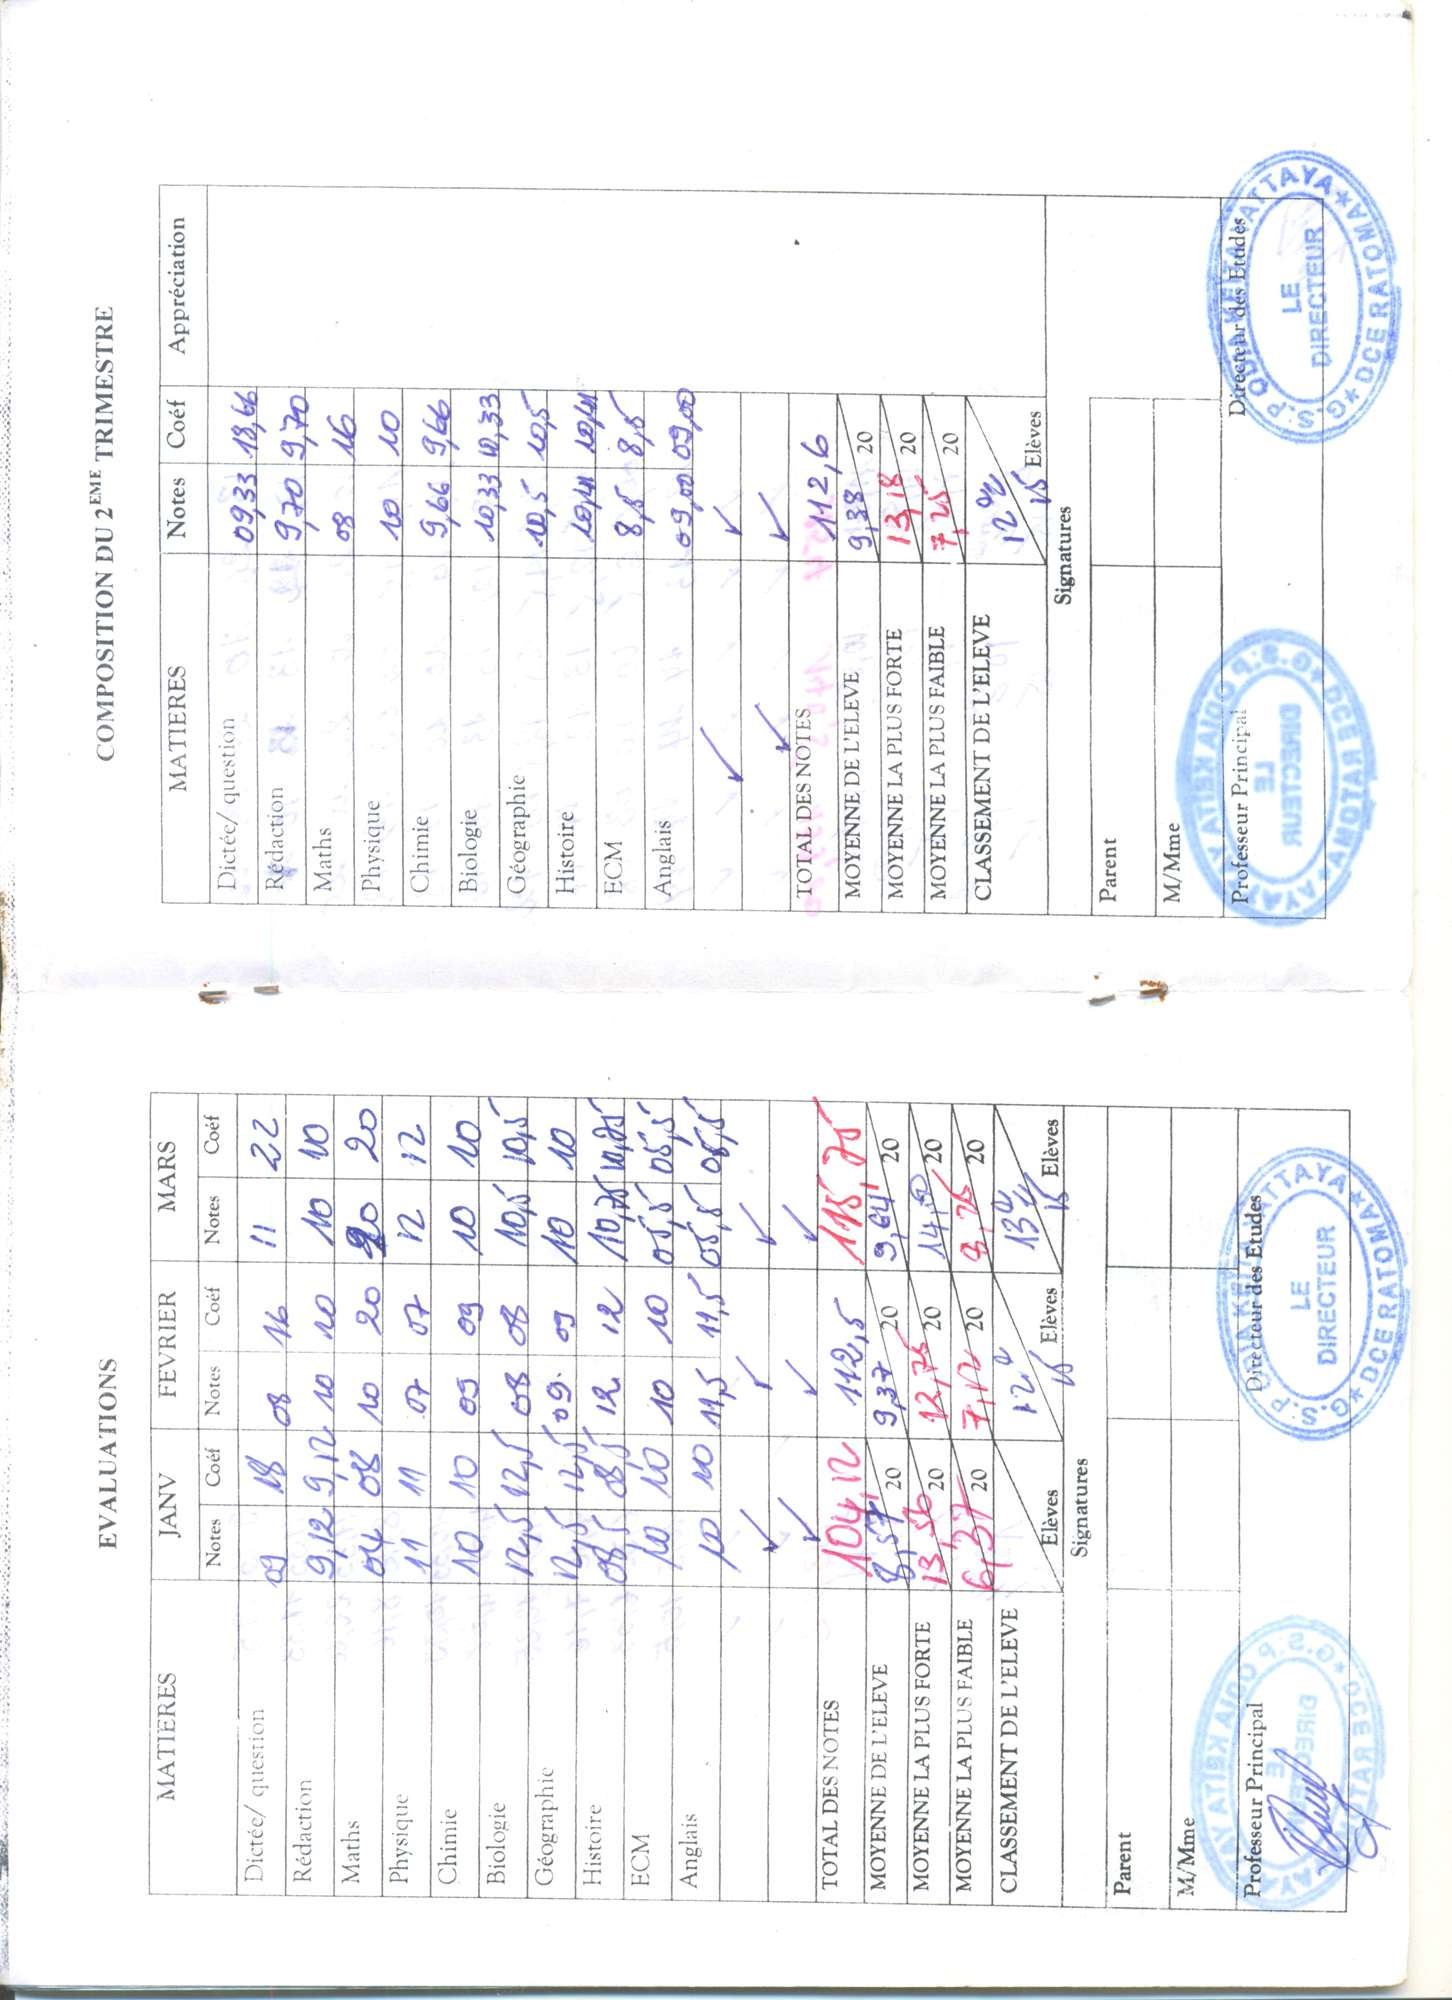 EVALUATIONS
MATIERES JANV FEVRIER MARS
Notes Coéf Notes Coéf Notes Coéf
Dictée/ question 09 18 08 16 11 22
Rédaction 9,12 9,12 10 10 10 10
Maths 04 08 10 20 20 20
Physique 11 11 07 07 12 12
Chimie 10 10 09 09 10 10
Biologie 12,5 12,5 08 08 10,5 10,5
Géographie 12,5 12,5 09 09 10 10
Histoire 08,5 08,5 12 12 10,75 10,75
ECM 10 10 10 10 05,5 05,5
Anglais 10 10 11,5 11,5 05,5 05,5
TOTAL DES NOTES 104,12 112,5 115,75
MOYENNE DE L'ELEVE 8,57 20 9,37 20 9,64 20
MOYENNE LA PLUS FORTE 13,56 20 12,75 20 14,50 20
MOYENNE LA PLUS FAIBLE 6,37 20 7,12 20 8,75 20
CLASSEMENT DE L'ELEVE Elèves 12e 15 Elèves 13e 15 Elèves
Signatures
Parent
M/Mme
Professeur Principal Directeur des Etudes
G.S.P ODIA KEITA YATTAYA
LE
DIRECTEUR
DCE RATOMA
COMPOSITION DU 2EME TRIMESTRE
MATIERES Notes Coéf Appréciation
Dictée/ question 09,33 18,66
Rédaction 9,70 9,70
Maths 08 16
Physique 10 10
Chimie 9,66 9,66
Biologie 10,33 10,33
Géographie 10,5 10,5
Histoire 10,41 10,41
ECM 8,5 8,5
Anglais 09,00 09,00
TOTAL DES NOTES 112,6
MOYENNE DE L'ELEVE 9,38 20
MOYENNE LA PLUS FORTE 13,18 20
MOYENNE LA PLUS FAIBLE 7,25 20
CLASSEMENT DE L'ELEVE 12e 15 Elèves
Signatures
Parent
M/Mme
Professeur Principal Directeur des Etudes
G.S.P ODIA KEITA YATTAYA
LE
DIRECTEUR
DCE RATOMA